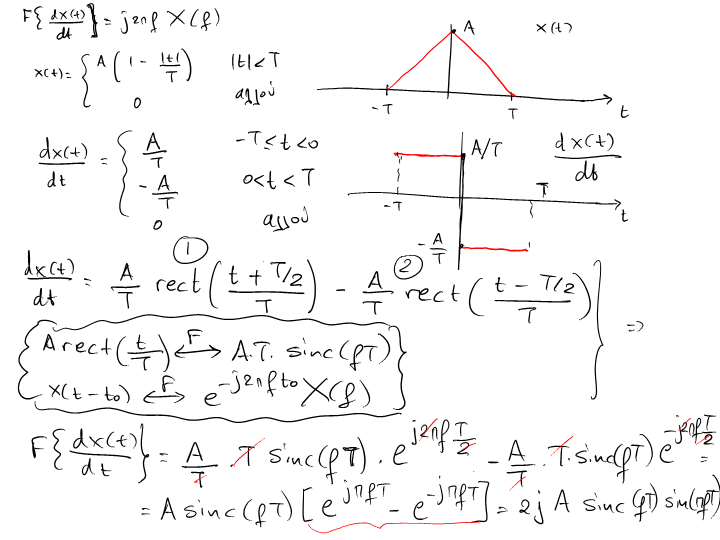 F{dx(t)/dt} = j2πf X(f)
x(t) = { A(1 - |t|/T) |t|<T
0 αλλού
A x(t)
-T T t
dx(t)/dt = { A/T -T≤t<0
-A/T 0<t<T
0 αλλού
A/T dx(t)/dt
-T T t
-A/T
① ②
dx(t)/dt = A/T rect((t + T/2)/T) - A/T rect((t - T/2)/T) } =>
A rect(t/T) <-F-> A.T. sinc(fT)
x(t-t₀) <-F-> e^{-j2πft₀} X(f)
F{dx(t)/dt} = A/T . T sinc(fT) . e^{j2πf T/2} - A/T . T. sinc(fT) e^{-j2πf T/2} =
= A sinc(fT) [e^{jπfT} - e^{-jπfT}] = 2j A sinc(fT) sin(πfT)